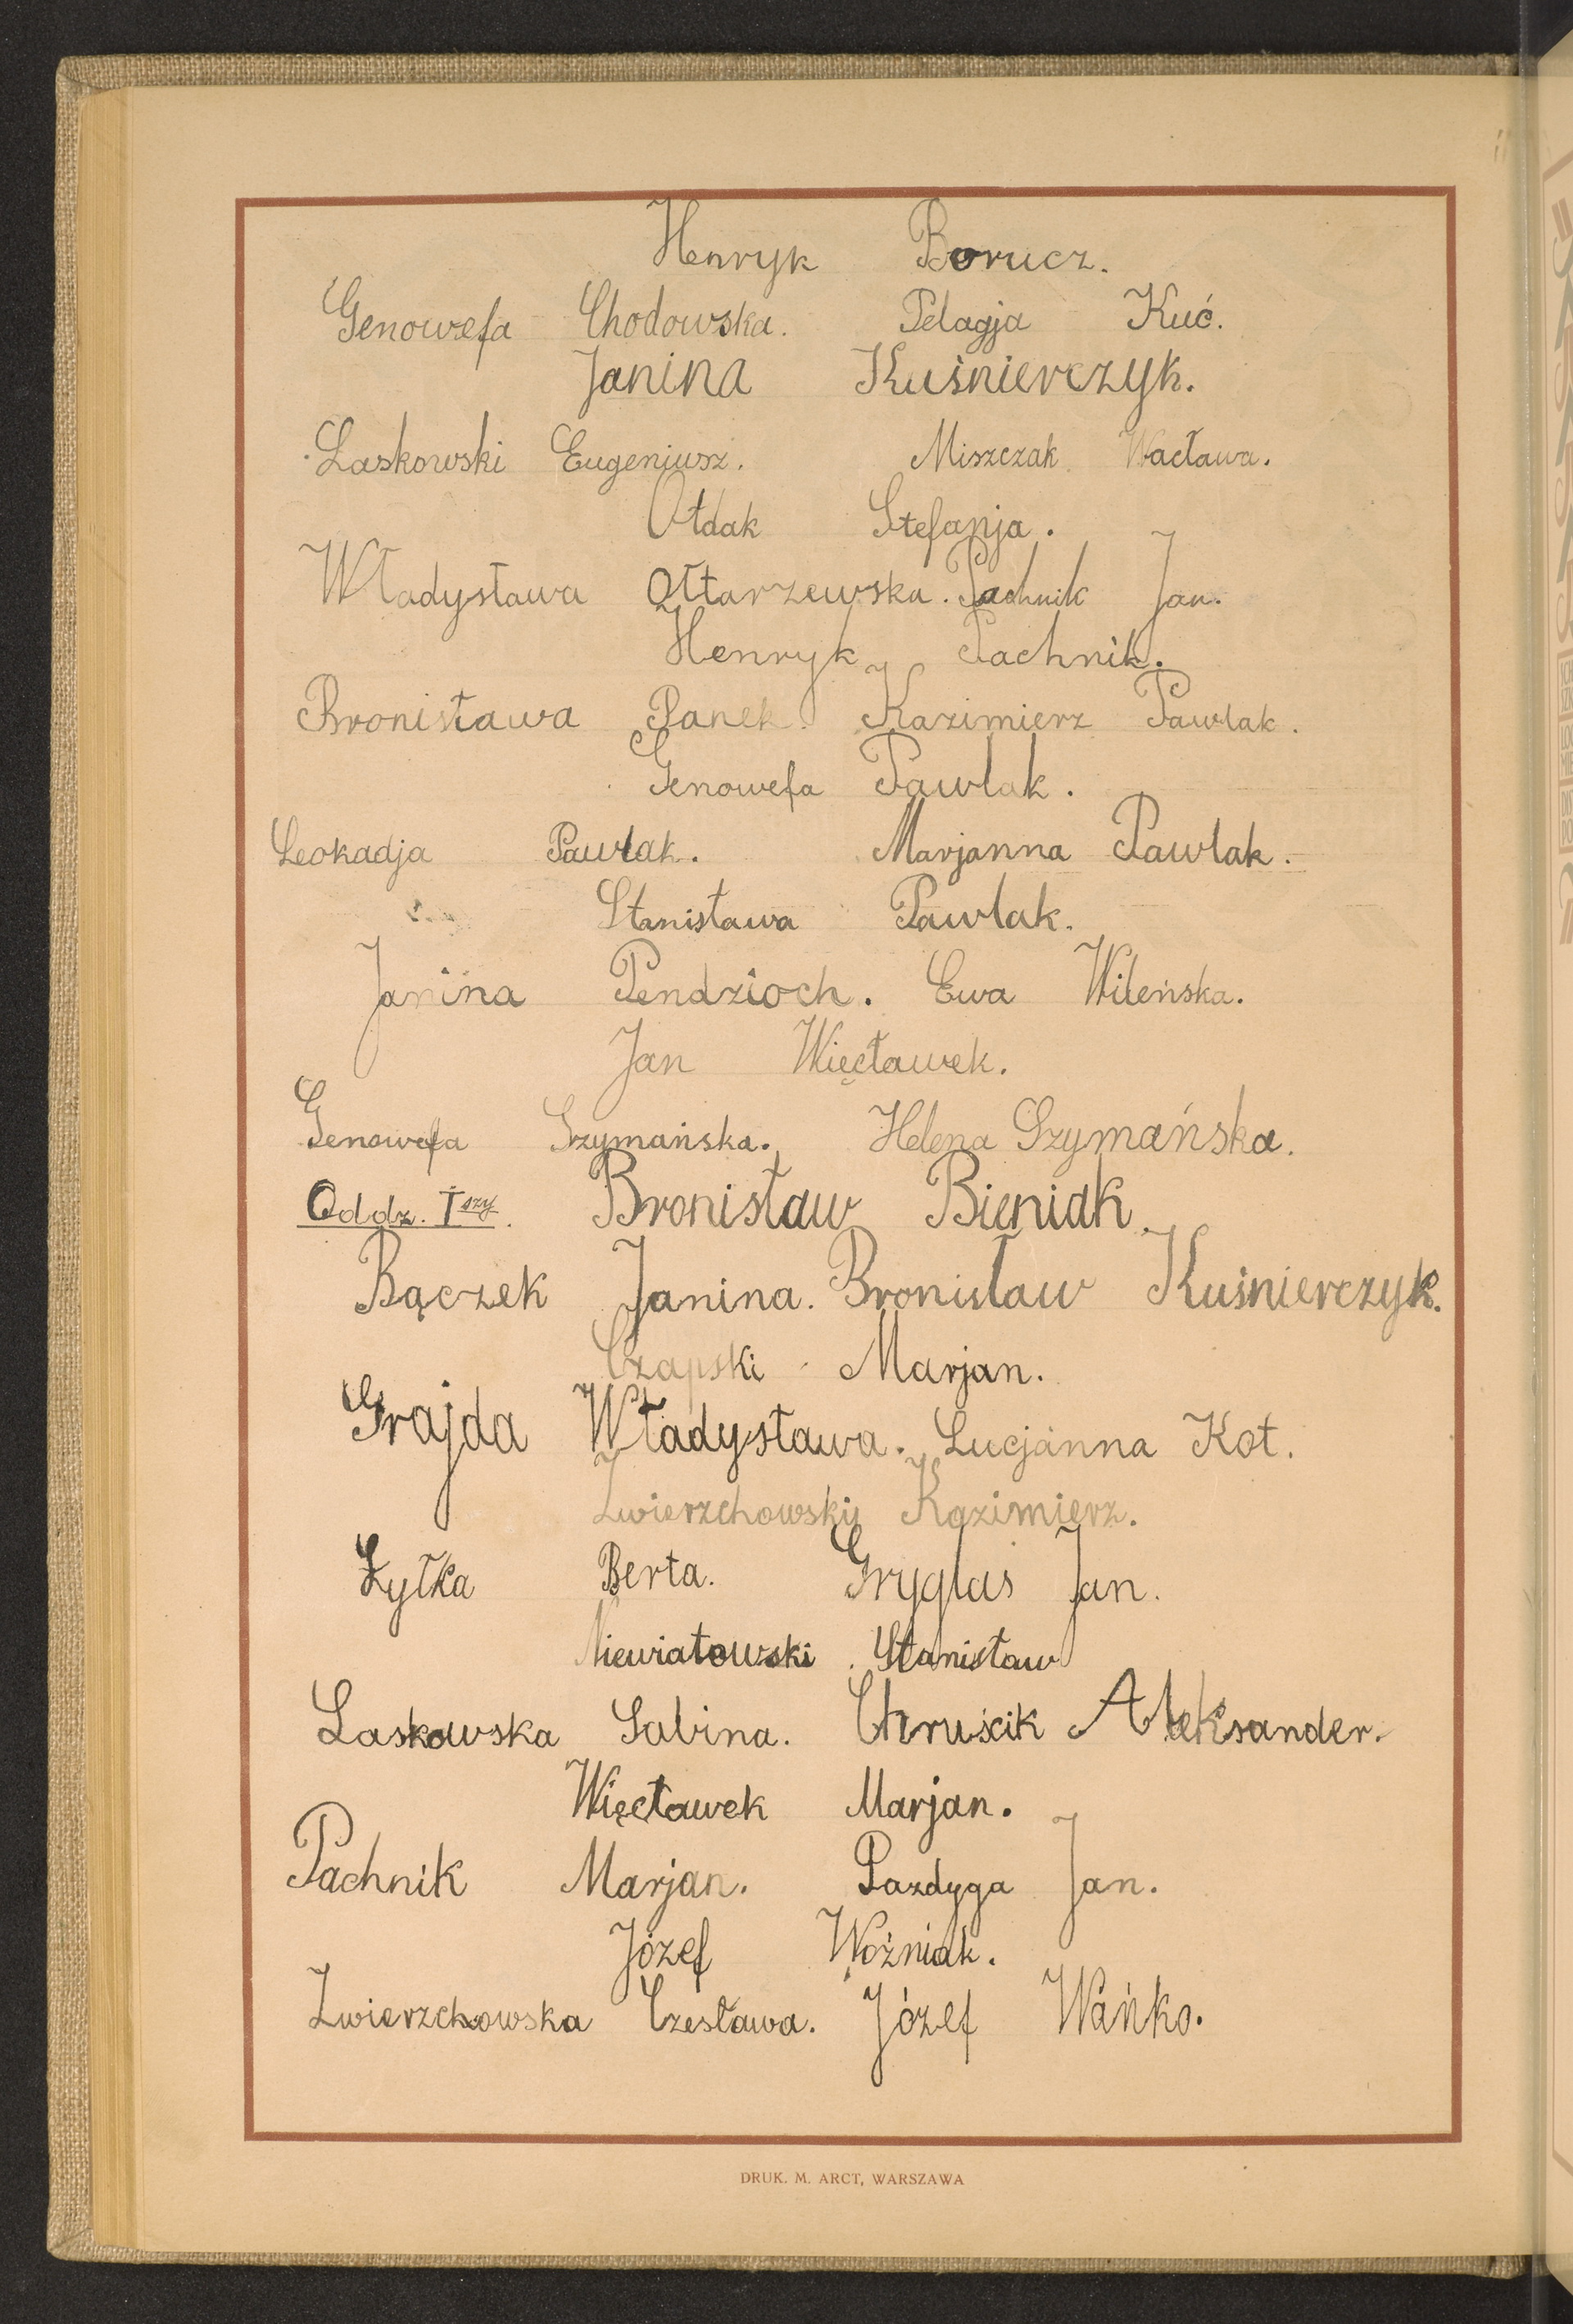 Henryk Borucz.
Genowefa Chodowska. Pelagja Kuć.
Janina Kuśnierczyk.
Laskowski Eugenjusz. Miszczak Wacława.
Ołdak Stefanja.
Władysława Ołtarzewska. Pachnik Jan.
Henryk Pachnik.
Bronisława Panek. Kazimierz Pawlak.
Genowefa Pawlak.
Leokadja Pawlak. Marjanna Pawlak.
Stanisława Pawlak.
Janina Pendzioch. Ewa Wileńska.
Jan Więcławek.
Genowefa Szymańska. Helena Szymańska.
Oddz. Iszy. Bronisław Bieniak.
Bączek Janina. Bronisław Kuśnierczyk.
Czapski Marjan.
Grajda Władysława. Lucjanna Kot.
Zwierzchowski Kazimierz.
Łytka Berta. Gryglas Jan.
Niewiatowski Stanisław
Laskowska Sabina. Chruścik Aleksander.
Więcławek Marjan.
Pachnik Marjan. Pazdyga Jan.
Józef Woźniak.
Zwierzchowska Czesława. Józef Wańko.
DRUK. M. ARCT, WARSZAWA